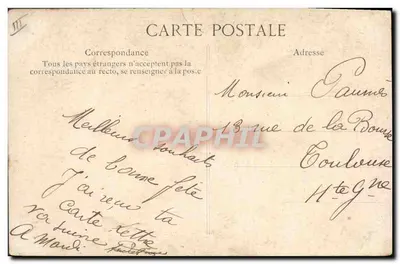 III
CARTE POSTALE
Correspondance
Tous les pays étrangers n'acceptent pas la
correspondance au recto, se renseigner à la poste
Adresse
Monsieur Paumès
13 rue de la Bourse
Toulouse
Hte Gne
Meilleurs souhaits
de bonne fête
J'ai reçu ta
carte lettre
A Mardi
CARTHAPHIL